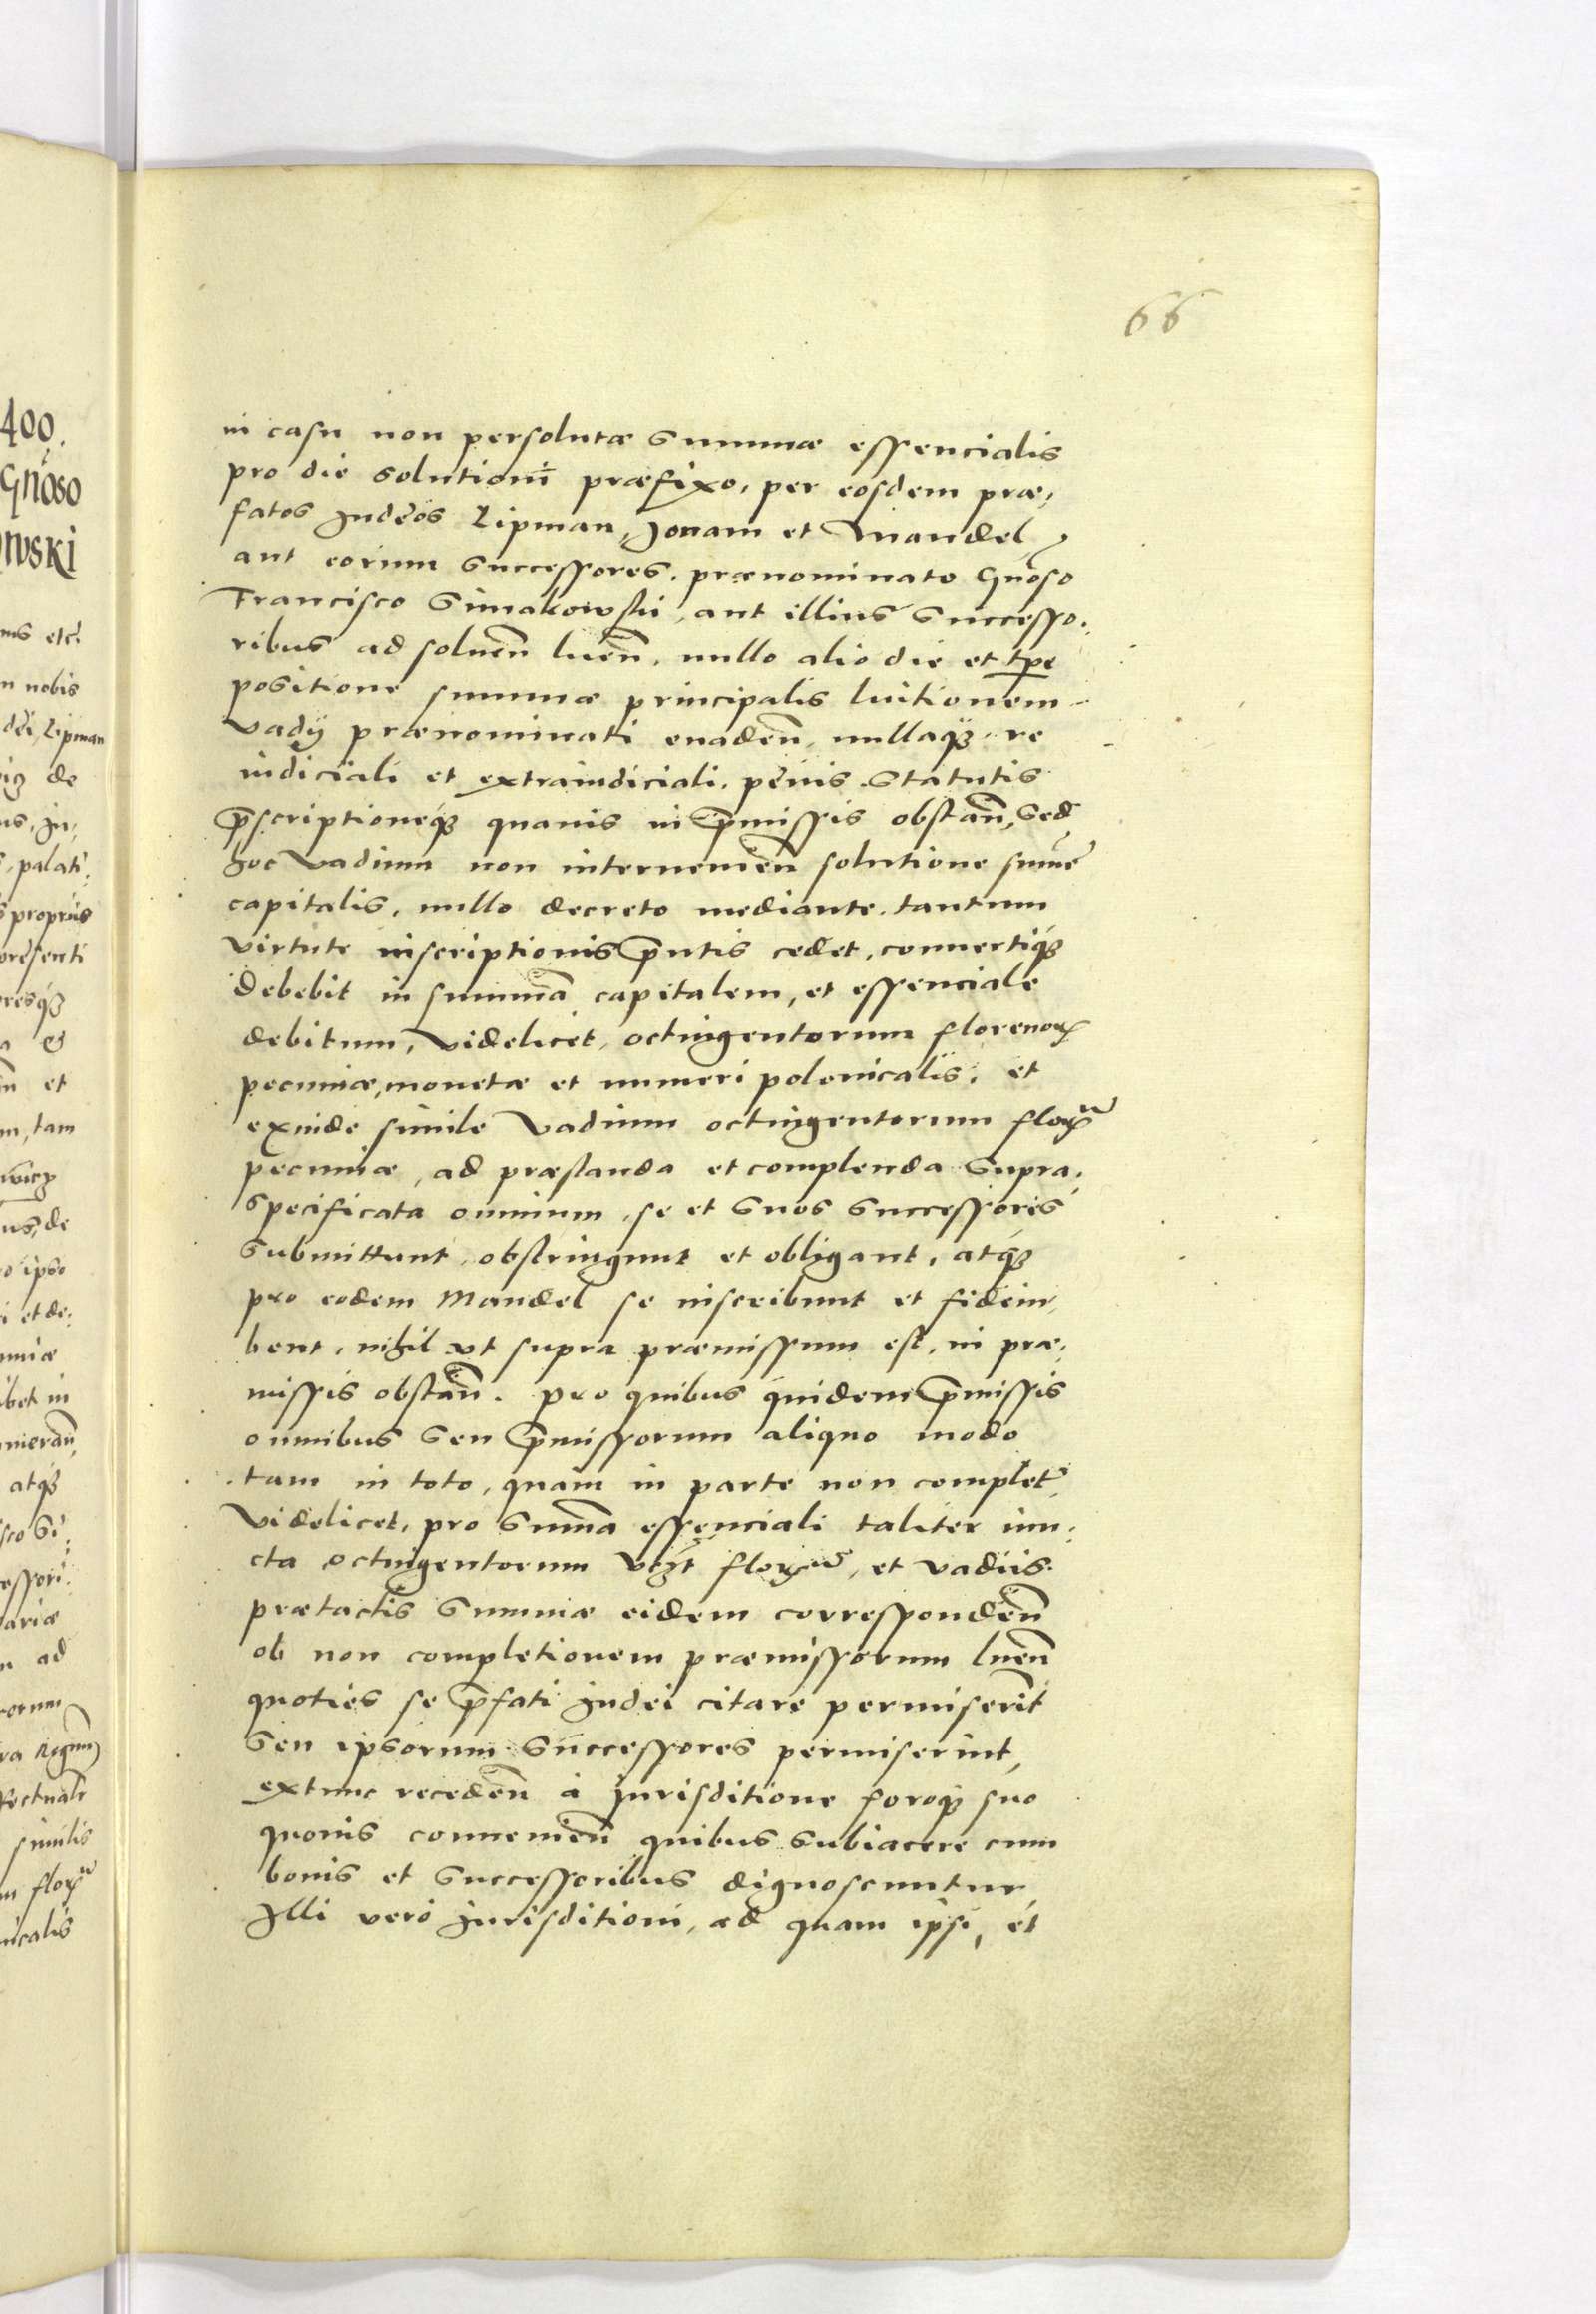 66
400.
Gnoso
wski
nis etc.
m nobis
dei, Lipman
de
us, Ju:
palati:
proprius
presenti
resq3
a &
et
m, tam
us, de
o ipso
i et de:
uniæ
ibet in
atq3
sco Si:
essori:
ariæ
n ad
rorum
ra Regnu
fectuali
similis
m florum
nicalis
in casu non persolutæ Summæ essencialis
pro die Solutioni præfixo, per eosdem præ,
fatos Judeos Lipman, Jonam et Mandel,
aut eorum Successores, prænominato Gnoso
Francisco Simakowski, aut illius Successo:
ribus ad soluen luen, nullo alio die et tpe
positione summæ principalis luitionem
vadij prænominati euaden, nullaq3 re
iudiciali et extraiudiciali, penis Statutis
pscriptioneq3 quauis in pmissis obstan, Sed
hoc vadium non interuenien solutione sume
capitalis, nullo decreto mediante, tantum
virtute inscriptionis pntis cedet, conuertiq3
debebit in summa capitalem, et essenciale
debitum, videlicet, octingentorum florenor
pecuniæ, monetæ et numeri polonicalis, et
exinde simile vadium octingentorum florum
pecuniæ, ad præstanda et complenda Supra,
specificata omnium, se et Suos Successores
Submittunt, obstringunt et obligant, atq3
pro eodem Mandel se inscribunt et fideiu,
bent, nihil vt supra præmissum est, in præ:
missis obstan. Pro quibus quidem pmissis
omnibus Seu pmissorum aliquo modo
tam in toto, quam in parte non complet,
videlicet, pro Suma essenciali taliter iun:
cta octingentorum vcht florum, et vadiis
prætactis Summæ eidem corresponden
ob non completionem præmissorum luen
quoties se pfati Judei citare permiserit
Seu ipsorum Successores permiserint,
extunc receden à jurisditione foroq3 suo
quouis conuenien quibus Subiacere cum
bonis et Successoribus dignoscuntur,
Illi vero Jurisditioni, ad quam ipsi, et